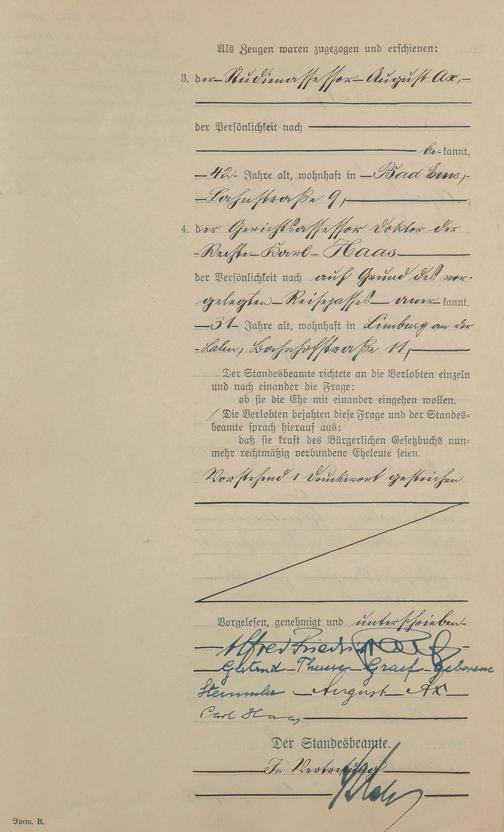 Als Zeugen waren zugezogen und erschienen:
3. der Studienassessor August Ax,
der Persönlichkeit nach
be kannt,
42 Jahre alt, wohnhaft in Bad Ems,
Lahnstraße 9,
4. der Gerichtsassessor Doktor der
Rechte Karl Haas
der Persönlichkeit nach auf Grund des vor-
gelegten Reisepasses aner kannt,
31 Jahre alt, wohnhaft in Limburg an der
Lahn, Bahnhofstraße 11,
Der Standesbeamte richtete an die Verlobten einzeln
und nach einander die Frage:
ob sie die Ehe mit einander eingehen wollen.
Die Verlobten bejahten diese Frage und der Standes-
beamte sprach hierauf aus:
daß sie kraft des Bürgerlichen Gesetzbuchs nun-
mehr rechtmäßig verbundene Eheleute seien.
Vorstehend 1 Druckwort gestrichen
Vorgelesen, genehmigt und unterschrieben
Alfred Friedrich Graef
Gertrud Therese Graef geborene
Stemmler August Ax
Carl Haas
Der Standesbeamte.
In Vertretung
Form. B.